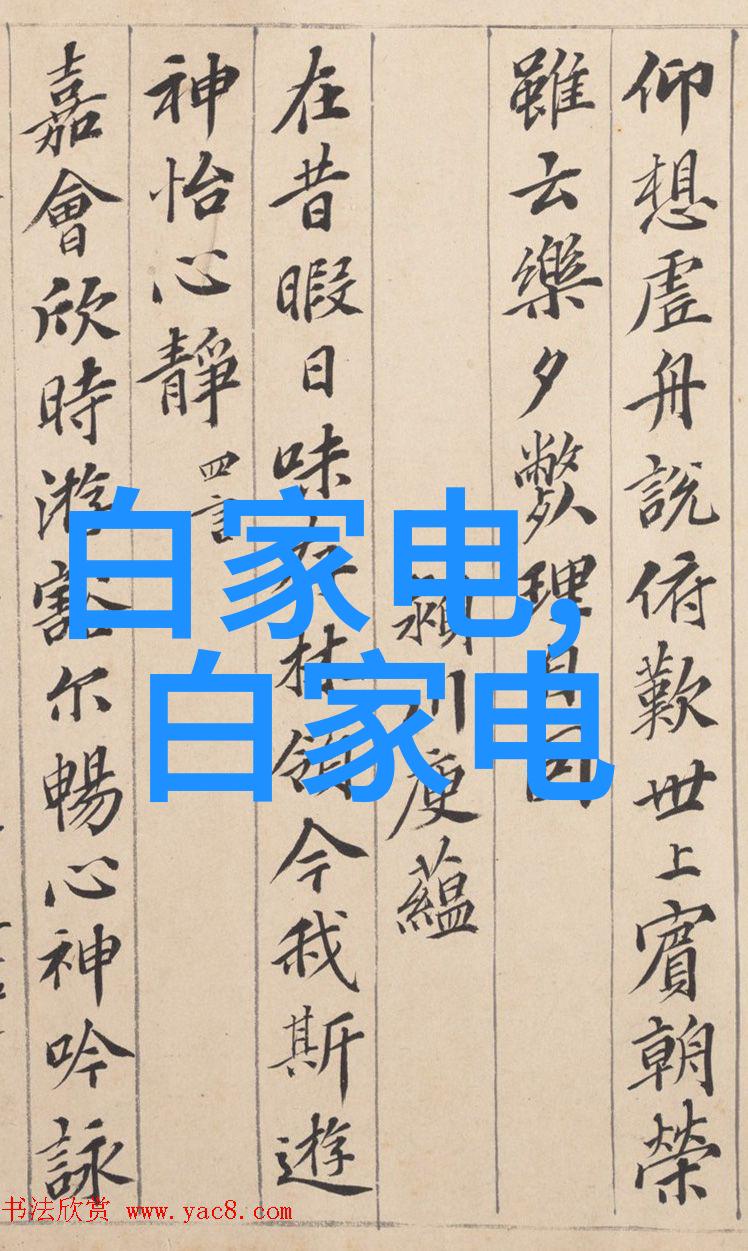 仰想虛舟說俯歎世上賓朝榮
雖云樂夕弊理自回
潁川庾蘊
在昔暇日味存林嶺今我斯遊
神怡心靜 四言
嘉會欣時游豁尔暢心神吟詠
白家电,
白家电
书法欣赏 www.yac8.com